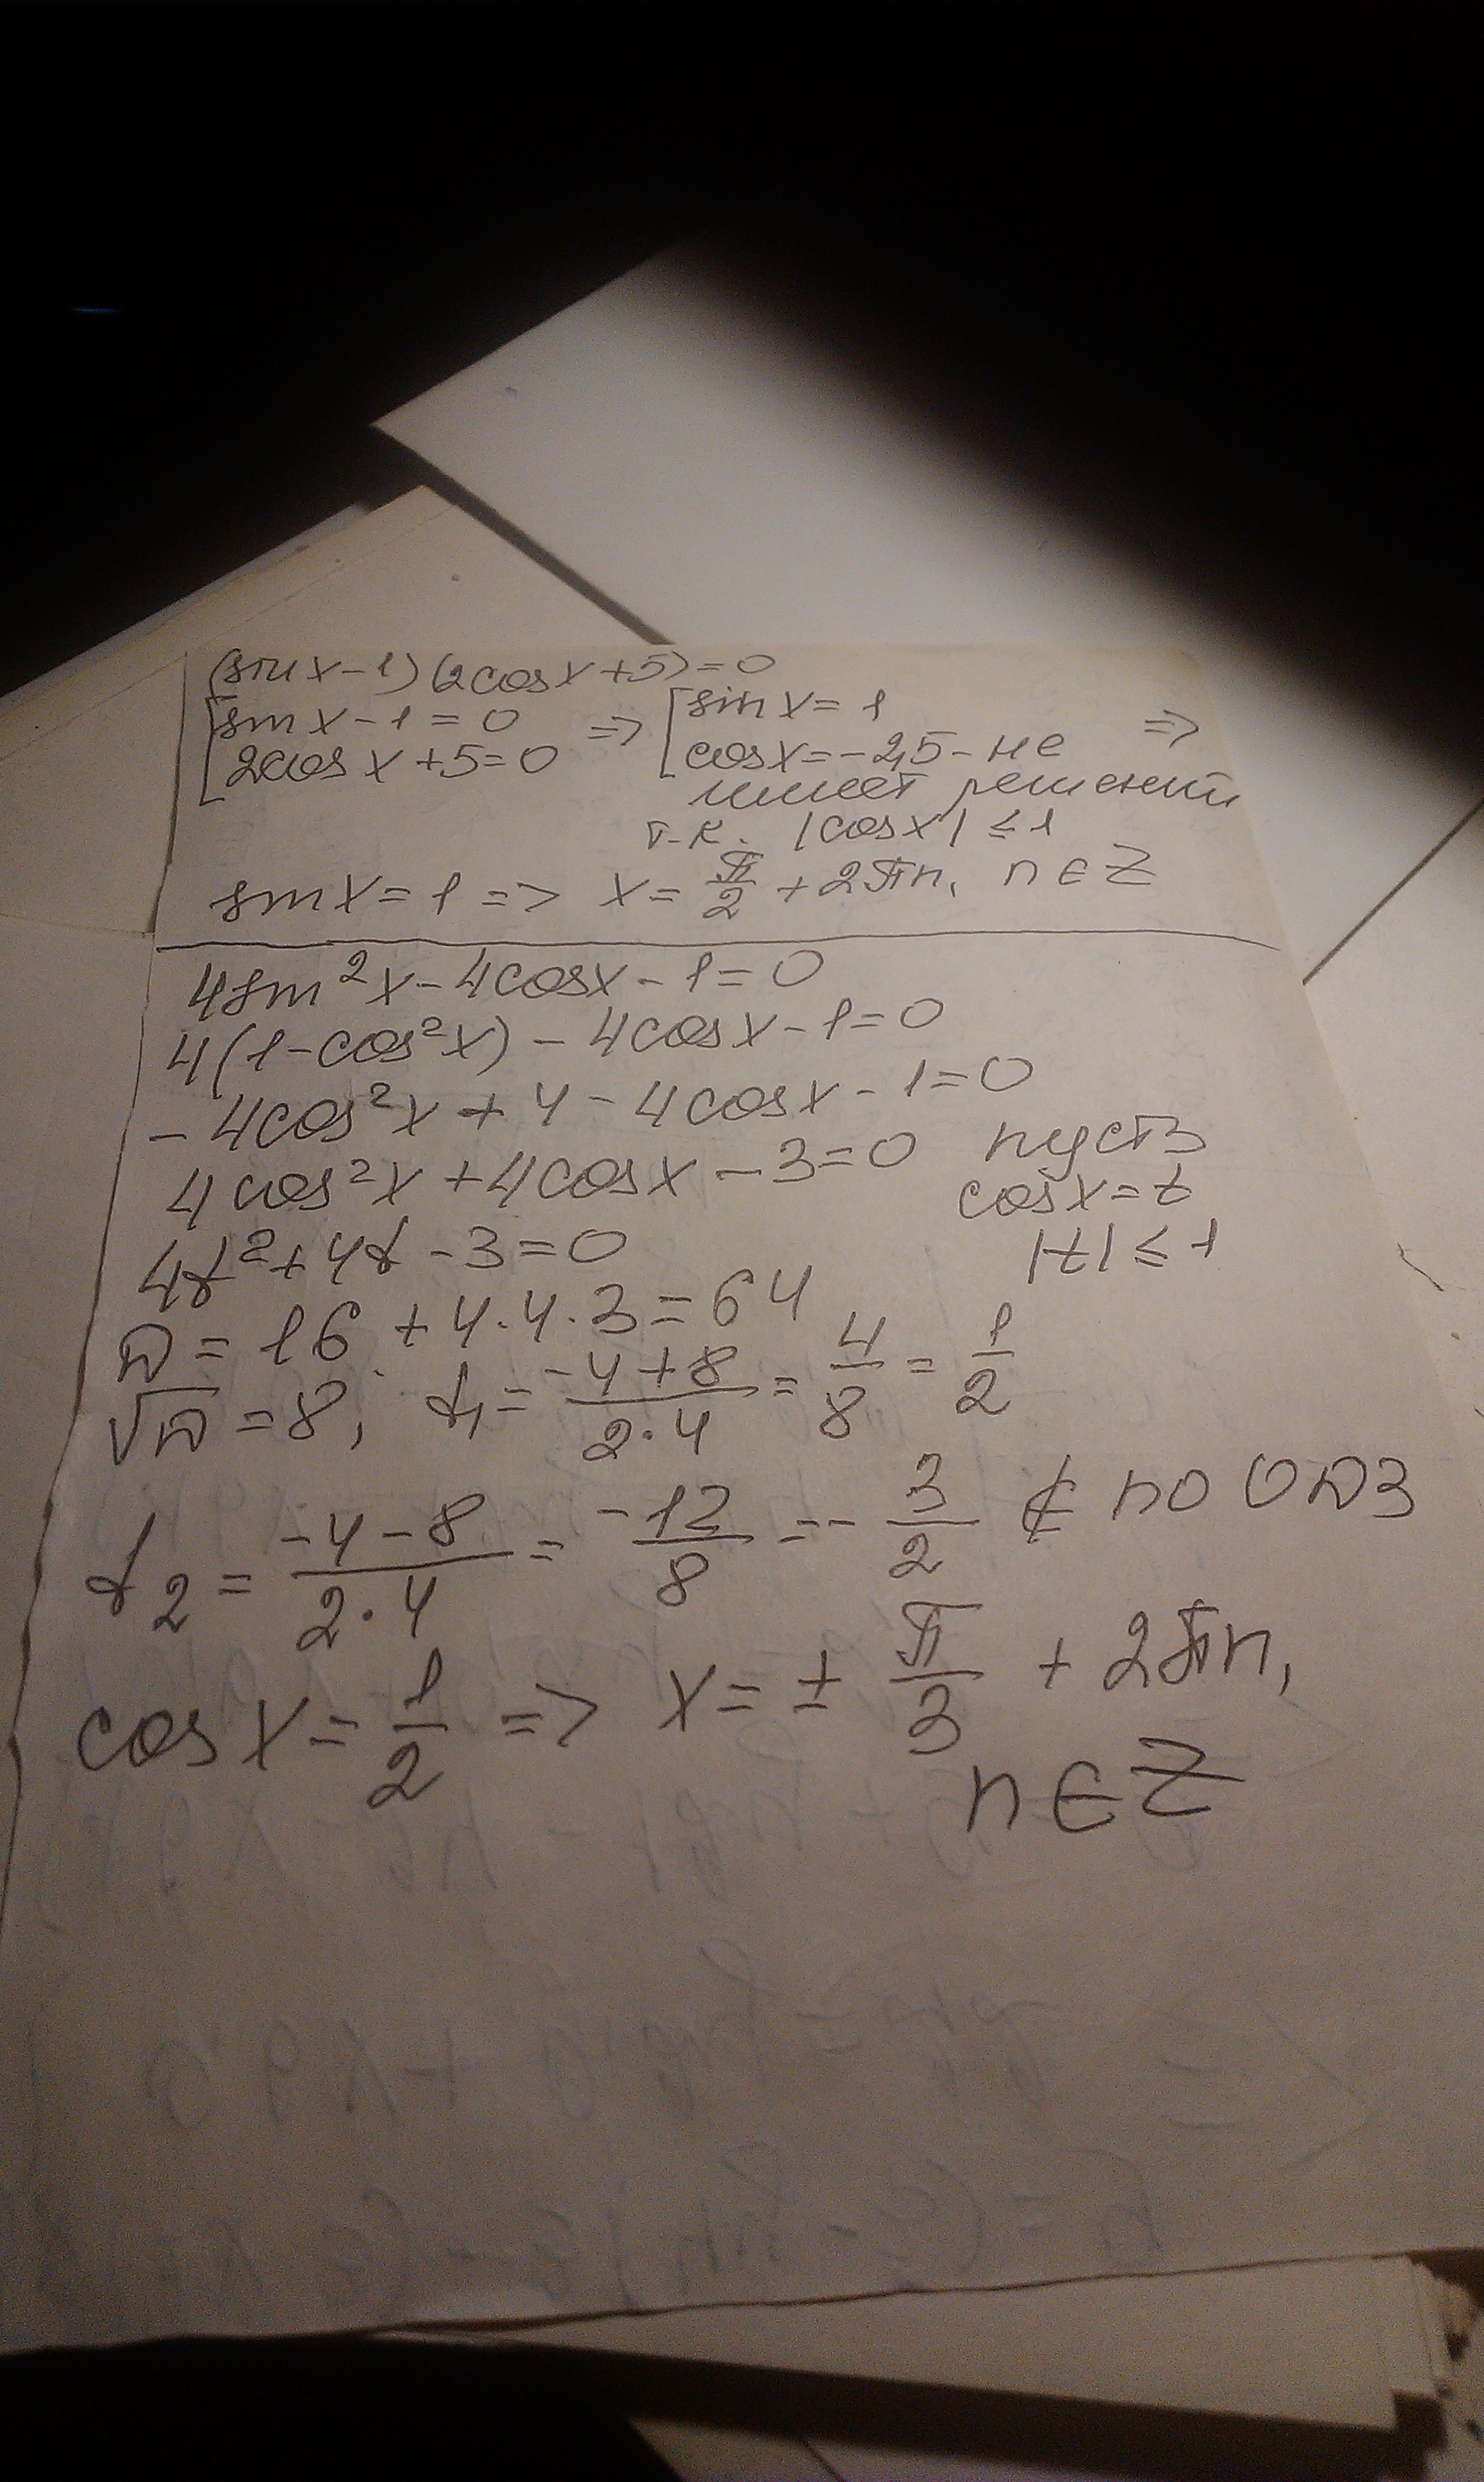 (sin x - 1)(2cos x + 5) = 0
[ sin x - 1 = 0 => [ sin x = 1 =>
2cos x + 5 = 0 cos x = -2,5 - не
имеет решений
т.к. |cos x| ≤ 1
sin x = 1 => x = π/2 + 2πn, n ∈ Z
4sin²x - 4cos x - 1 = 0
4(1 - cos²x) - 4cos x - 1 = 0
- 4cos²x + 4 - 4cos x - 1 = 0
4cos²x + 4cos x - 3 = 0 пусть
cos x = t
4t² + 4t - 3 = 0 |t| ≤ 1
D = 16 + 4·4·3 = 64
√D = 8; t₁ = (-4+8)/(2·4) = 4/8 = 1/2
t₂ = (-4-8)/(2·4) = -12/8 = -3/2 ∉ по ОДЗ
cos x = 1/2 => x = ± π/3 + 2πn,
n ∈ Z